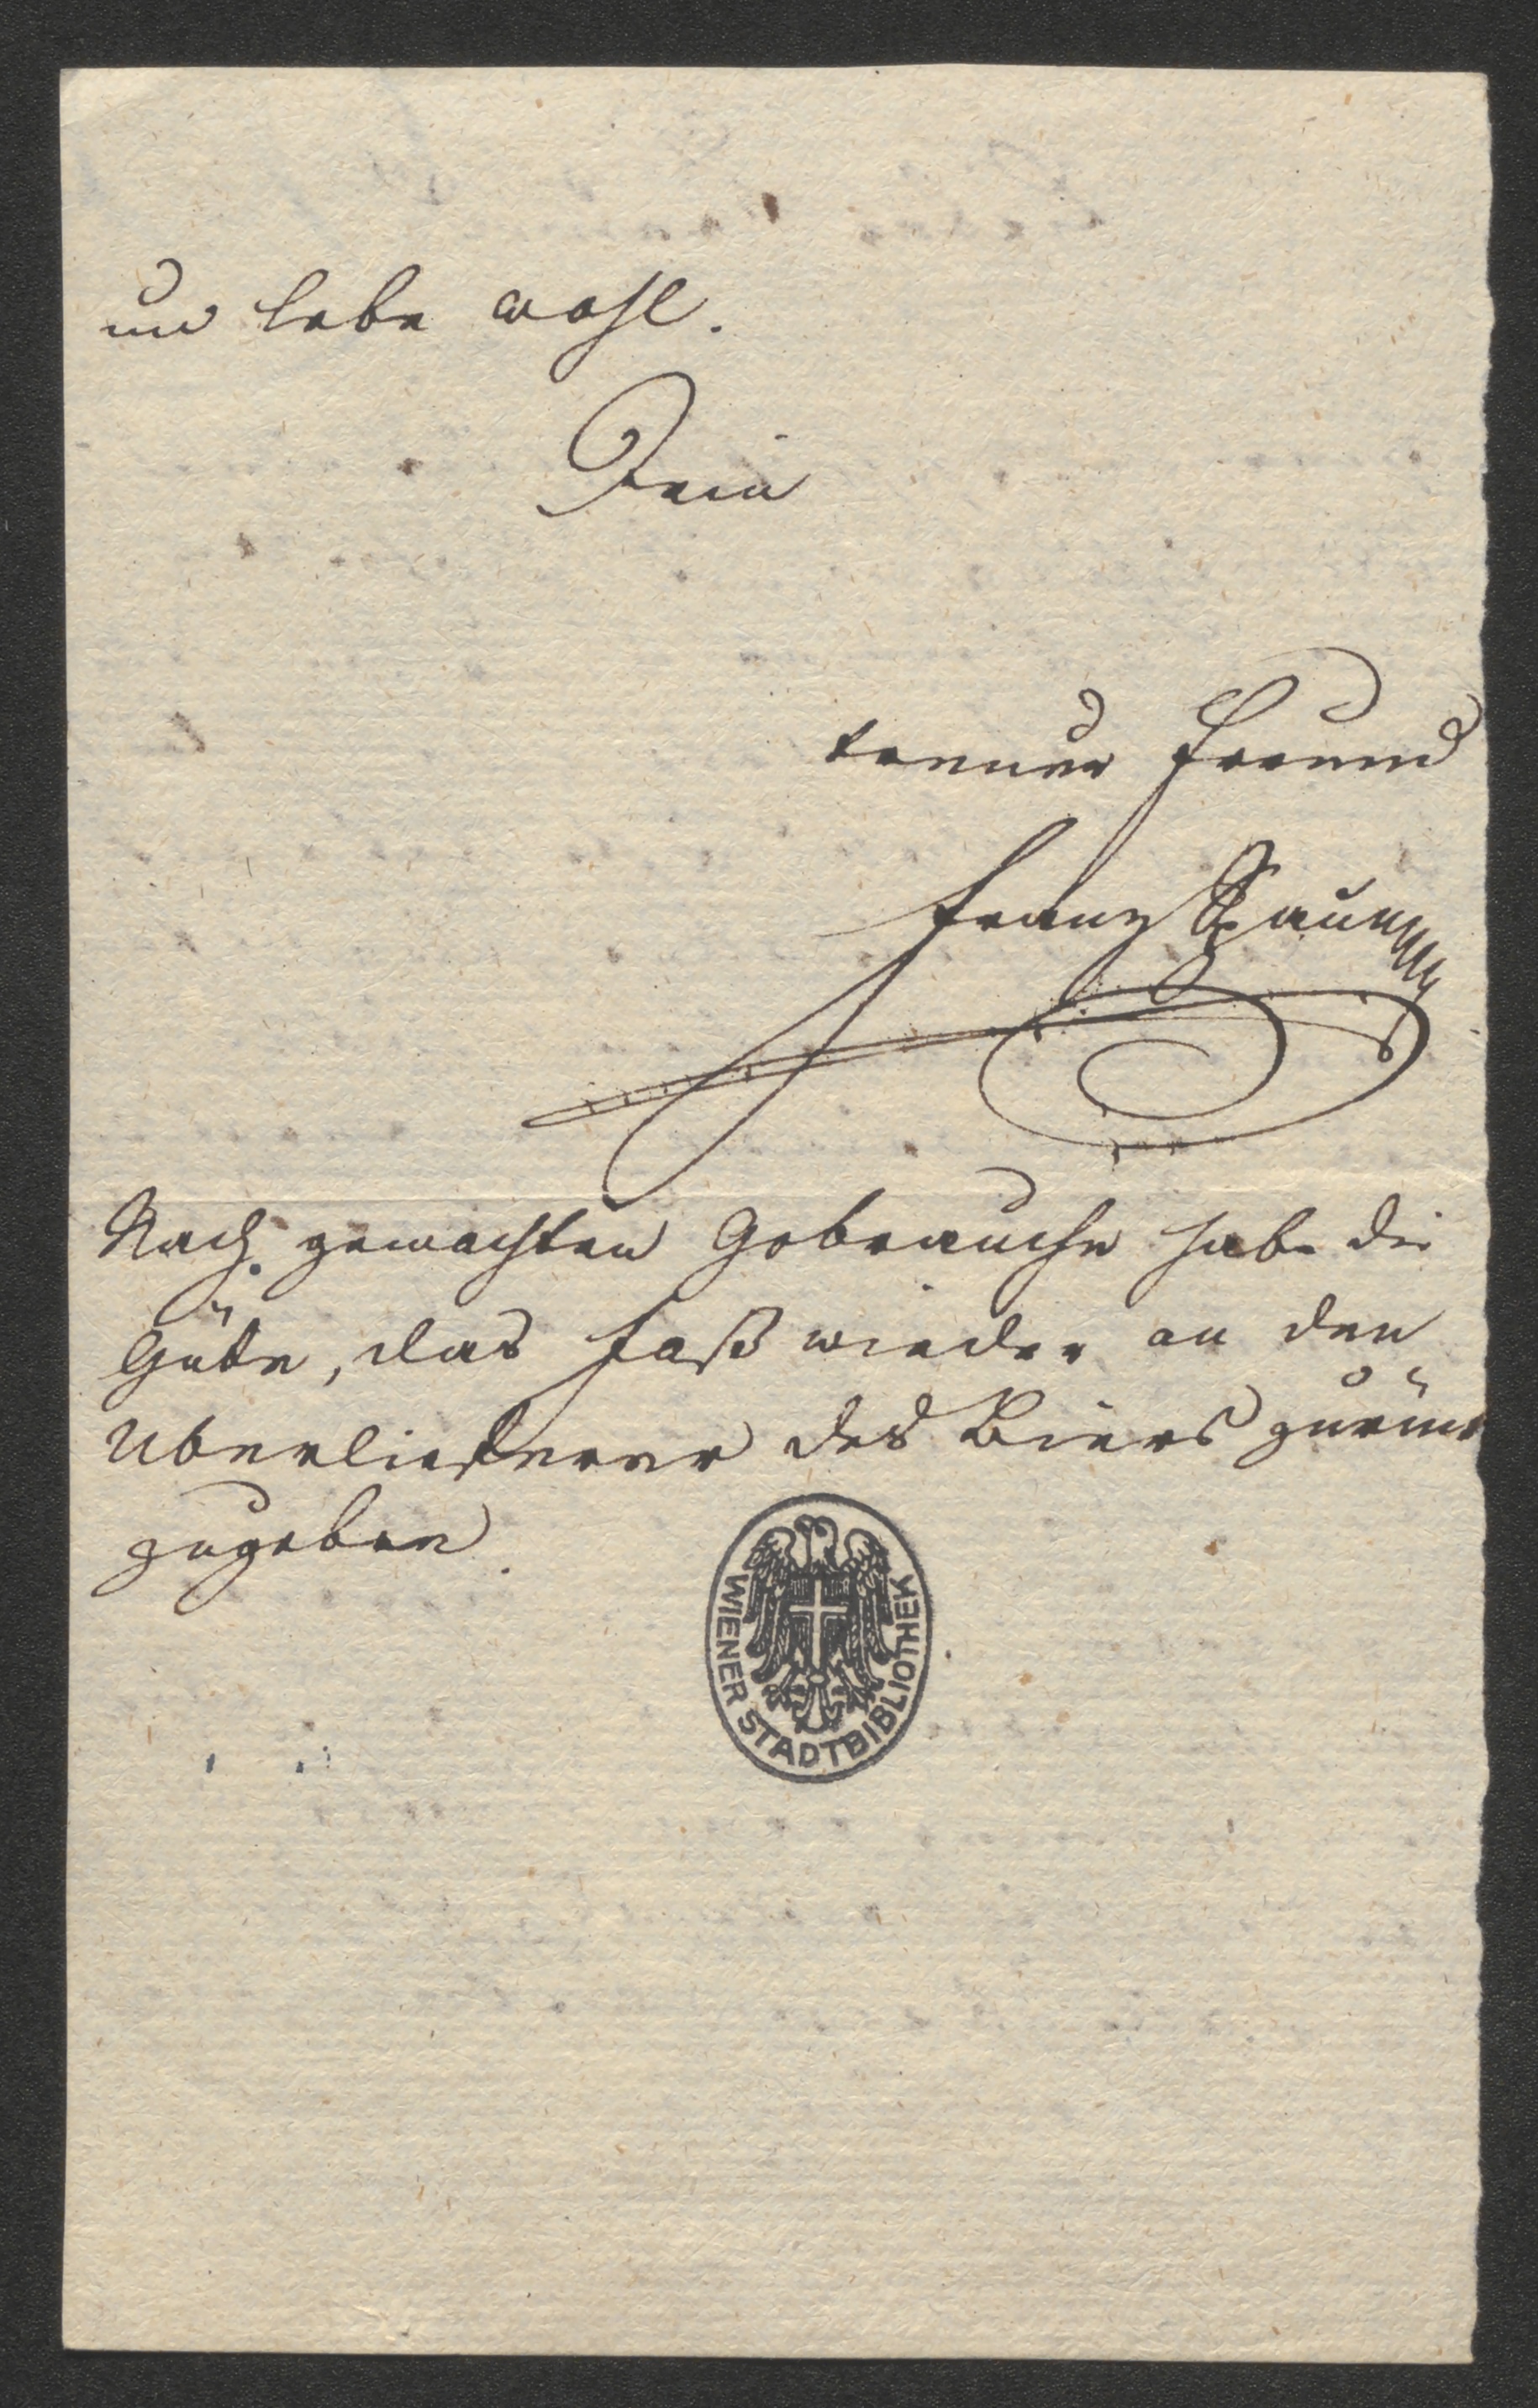 und lebe wohl.
Dein
treuer Freund
Franz Spaun
Nach gemachten Gebrauche habe die
Güte, das Faß wieder an den
Uberlieferer des Biers zurück
zugeben.
WIENER STADTBIBLIOTHEK